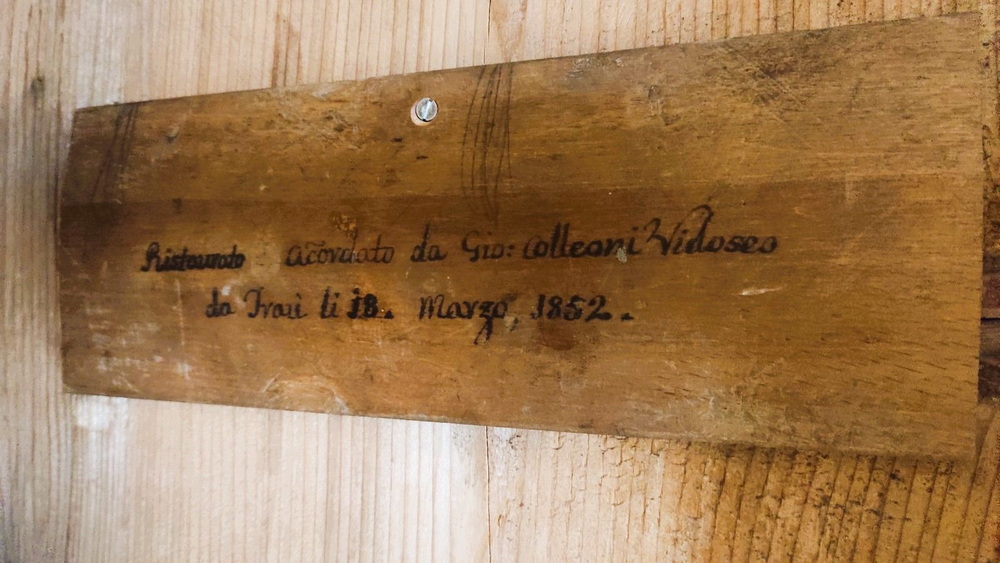 Ristaurato Acordato da Gio: Colleoni Vidoseo
da Traù li 18. Marzo, 1852.